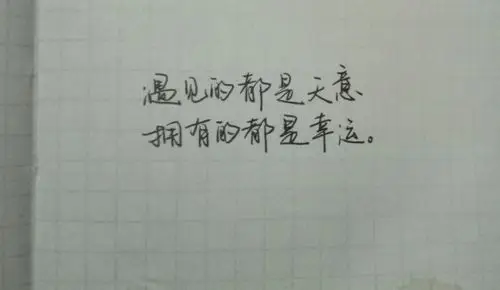 遇见的都是天意
拥有的都是幸运。